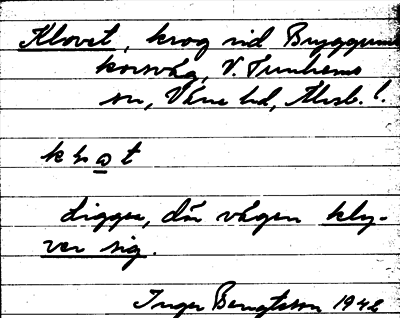 Klovet, krog vid Bryggums
korsväg, V. Tunhems
sn, Väne hd, Älvsb. l.
Ligger, där vägen kly-
ver sig.
Inger Bengtsson 1942